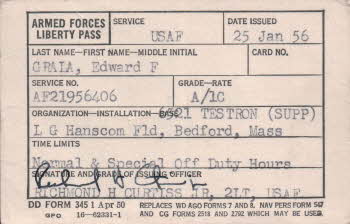 ARMED FORCES LIBERTY PASS
SERVICE
USAF
DATE ISSUED
25 Jan 56
LAST NAME—FIRST NAME—MIDDLE INITIAL
GRALA, Edward F
CARD NO.
SERVICE NO.
AF21956406
GRADE—RATE
A/1C
ORGANIZATION—INSTALLATION—
6521 TESTRON (SUPP)
L G Hanscom Fld, Bedford, Mass
TIME LIMITS
Normal & Special Off Duty Hours
SIGNATURE AND GRADE OF ISSUING OFFICER
RICHMOND H CURTISS JR, 2LT, USAF
DD FORM 345 1 Apr 50
GPO 16—62331-1
REPLACES WD AGO FORMS 7 AND 8, NAVPERS FORM 547
AND CG FORMS 2518 AND 2792 WHICH MAY BE USED.